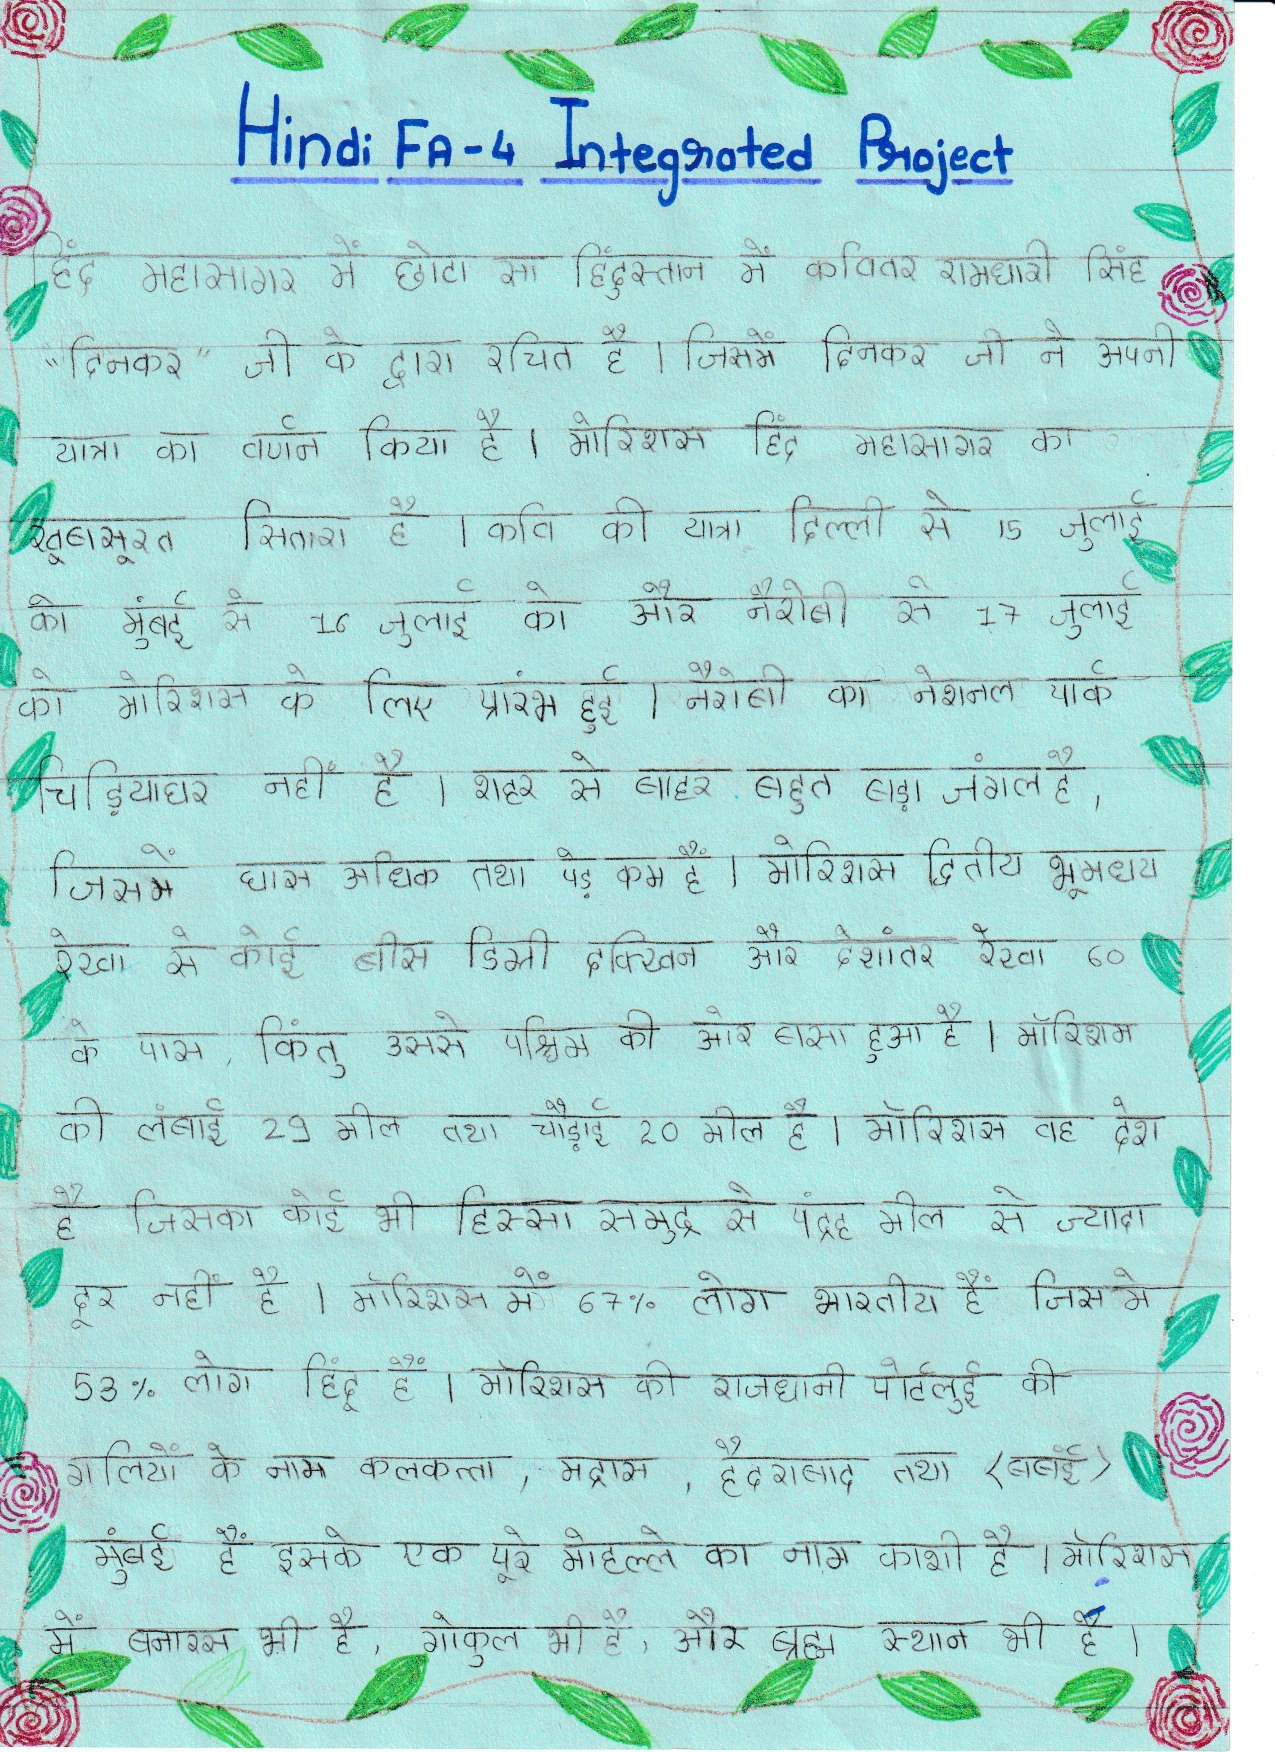 Hindi FA-4 Integrated Project
हिंद महासागर में छोटा सा हिंदुस्तान में कवितर रामधारी सिंह
"दिनकर" जी के द्वारा रचित है । जिसमें दिनकर जी ने अपनी
यात्रा का वर्णन किया है । मोरिशस हिंद महासागर का
खूबसूरत सितारा है । कवि की यात्रा दिल्ली से 15 जुलाई
को मुंबई से 16 जुलाई को और नैरोबी से 17 जुलाई
को मोरिशस के लिए प्रारंभ हुई । नैरोबी का नेशनल पार्क
चिड़ियाघर नहीं है । शहर से बाहर बहुत बड़ा जंगल है ,
जिसमें घास अधिक तथा पेड़ कम हैं । मोरिशस द्वितीय भूमधय
रेखा से कोई बीस डिग्री दक्खिन और देशांतर रेखा 60
के पास , किंतु उससे पश्चिम की ओर बसा हुआ है । मॉरिशस
की लंबाई 29 मील तथा चौड़ाई 20 मील है । मॉरिशस वह देश
है जिसका कोई भी हिस्सा समुद्र से पंद्रह मील से ज्यादा
दूर नहीं है । मॉरिशस में 67% लोग भारतीय हैं जिसमे
53% लोग हिंदू हैं । मॉरिशस की राजधानी पोर्टलुई की
गलियों के नाम कलकत्ता , मद्रास , हैदराबाद तथा (बबंई)
मुंबई हैं इसके एक पूरे मोहल्ले का नाम काशी है । मॉरिशस
में बनारस भी है , गोकुल भी है , और ब्रह्म स्थान भी है ।